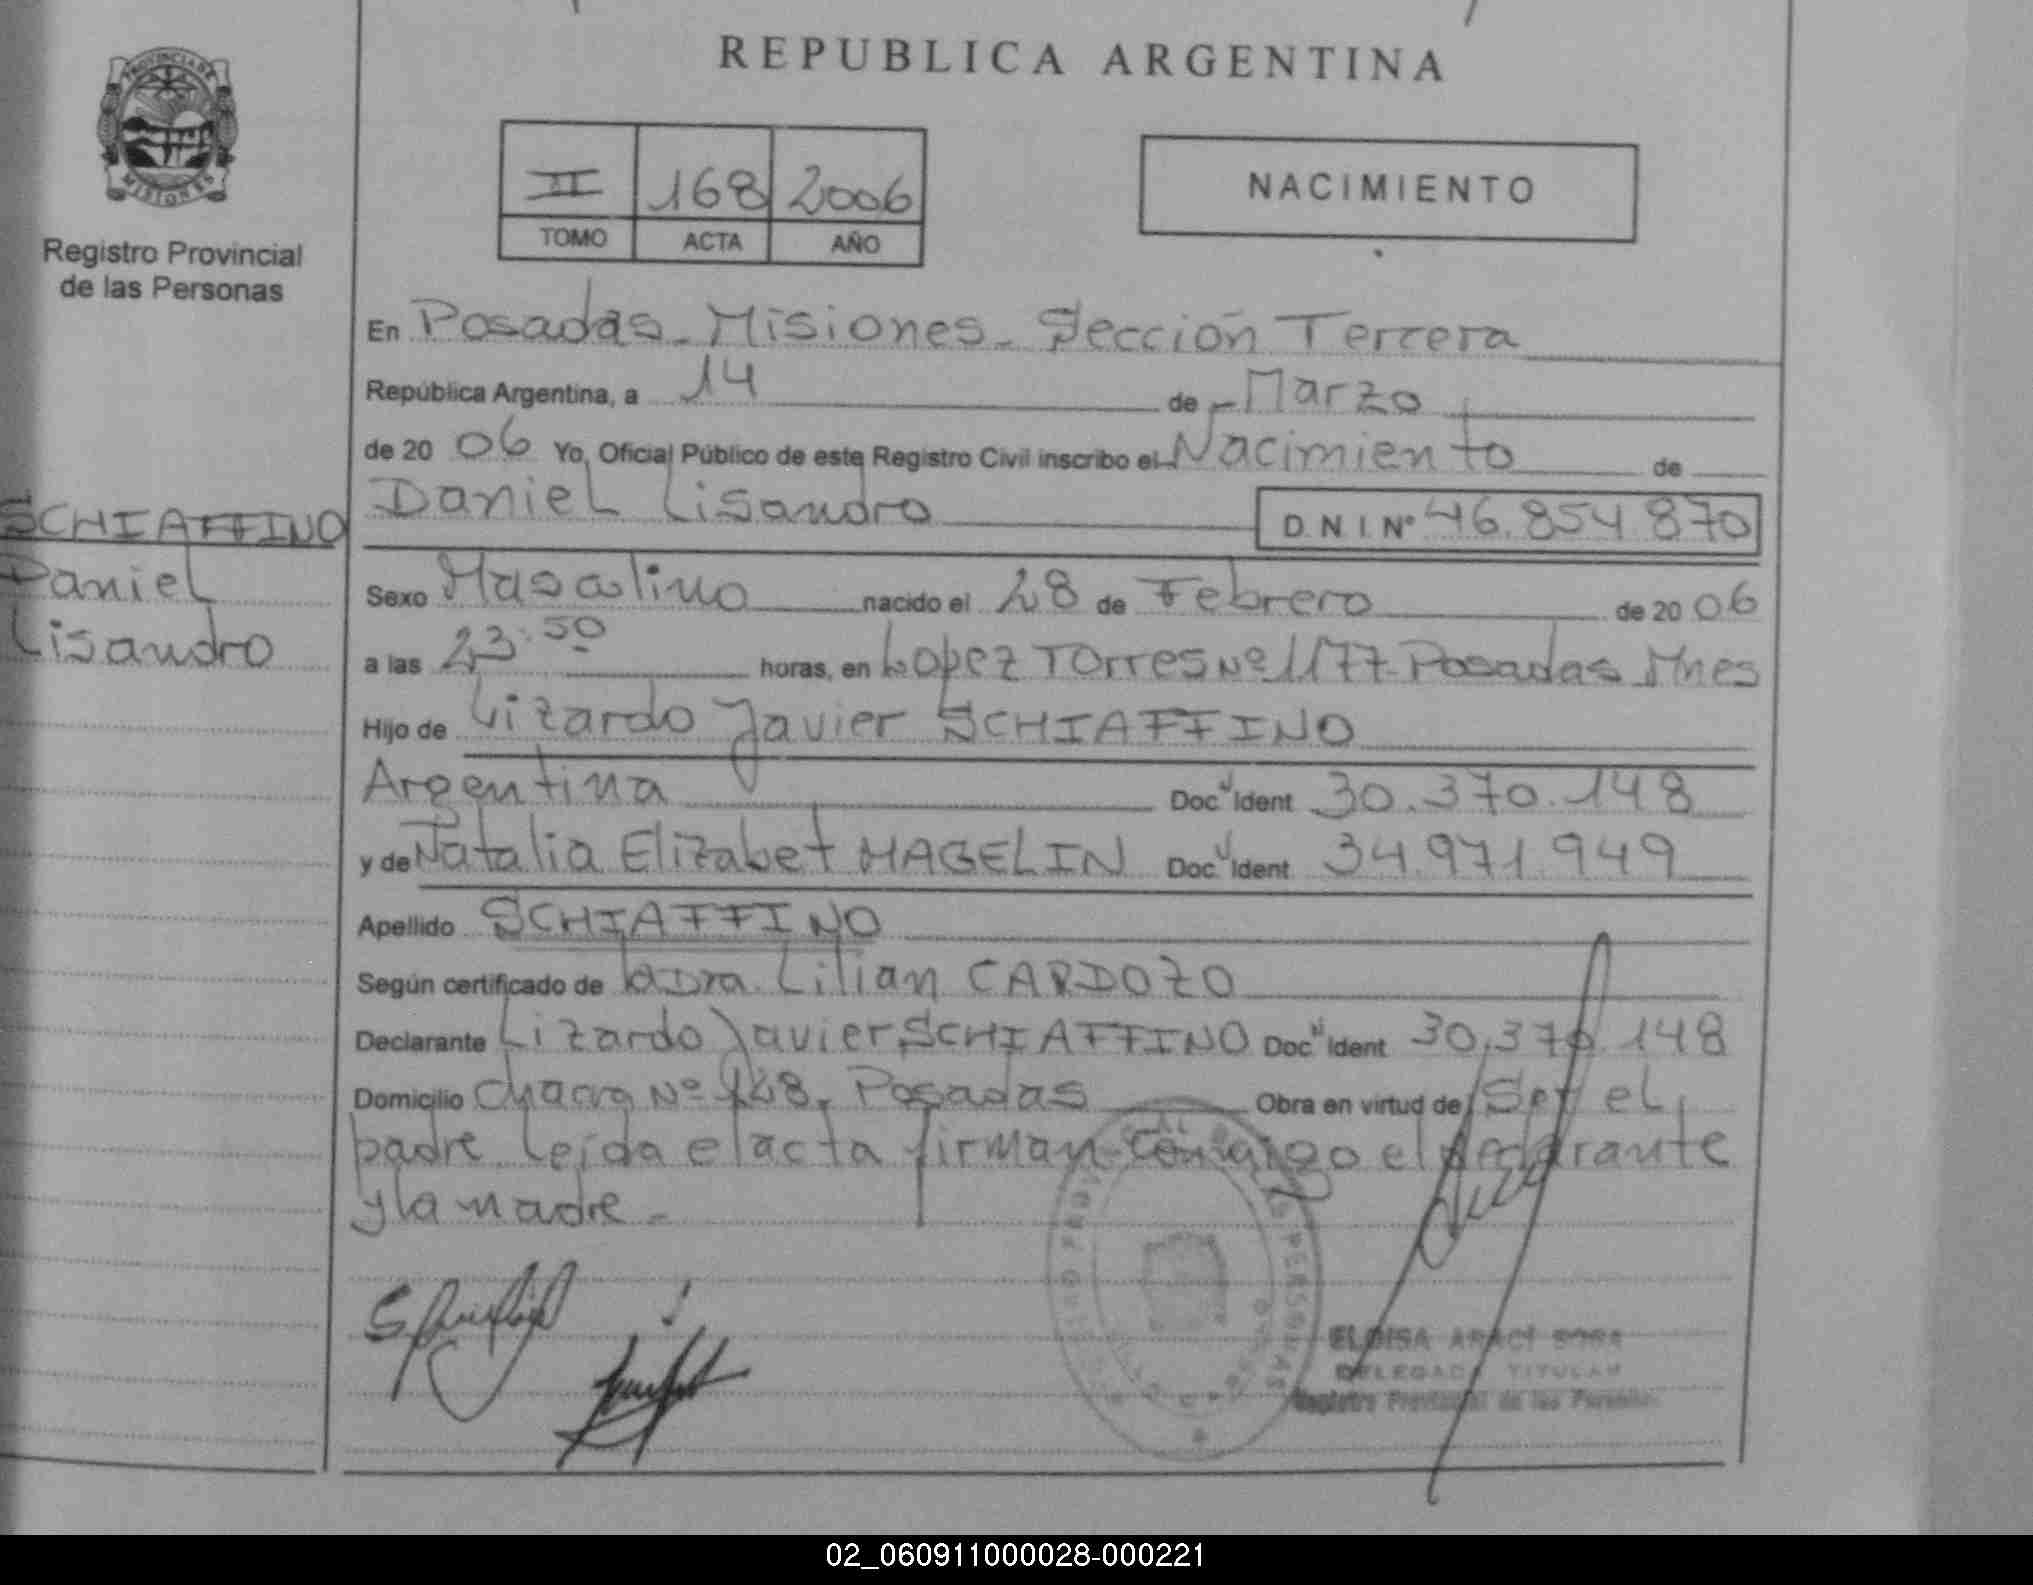 REPUBLICA ARGENTINA
PROVINCIA DE
MISIONES
Registro Provincial
de las Personas
II 168 2006
TOMO ACTA AÑO
NACIMIENTO
En Posadas - Misiones - Sección Tercera
República Argentina, a 14 de Marzo
de 20 06 Yo, Oficial Público de este Registro Civil inscribo el Nacimiento de
SCHIAFFINO
Daniel
Lisandro
Daniel Lisandro D.N.I. Nº 46.854.870
Sexo Masculino nacido el 28 de Febrero de 20 06
a las 23:50 horas, en Lopez Torres Nº 1177 - Posadas Mnes
Hijo de Lizardo Javier SCHIAFFINO
Argentina Doc. Ident 30.370.148
y de Natalia Elizabet HAGELIN Doc. Ident 34.971.949
Apellido SCHIAFFINO
Según certificado de la Dra. Lilian CARDOZO
Declarante Lizardo Javier SCHIAFFINO Doc. Ident 30.370.148
Domicilio Chacra Nº 148, Posadas Obra en virtud de Ser el
padre. Leída el acta firman conmigo el declarante
y la madre -
ELOISA ARACI SOSA
DELEGADA TITULAR
Registro Provincial de las Personas
02_060911000028-000221